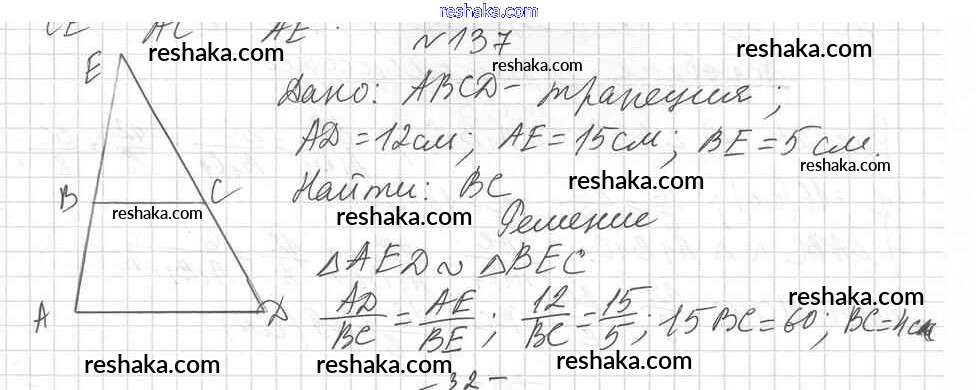 www.reshaka.com
CE AC AE .
№137
reshaka.com
reshaka.com
reshaka.com
E
Дано: ABCD – трапеция;
AD = 12 см; AE = 15 см; BE = 5 см.
reshaka.com
Найти: BC
reshaka.com
B C
reshaka.com
reshaka.com
Решение
△AED ~ △BEC
A D
AD/BC = AE/BE; 12/BC = 15/5; 15BC = 60; BC = 4 см
reshaka.com
reshaka.com
reshaka.com
reshaka.com
– 32 –